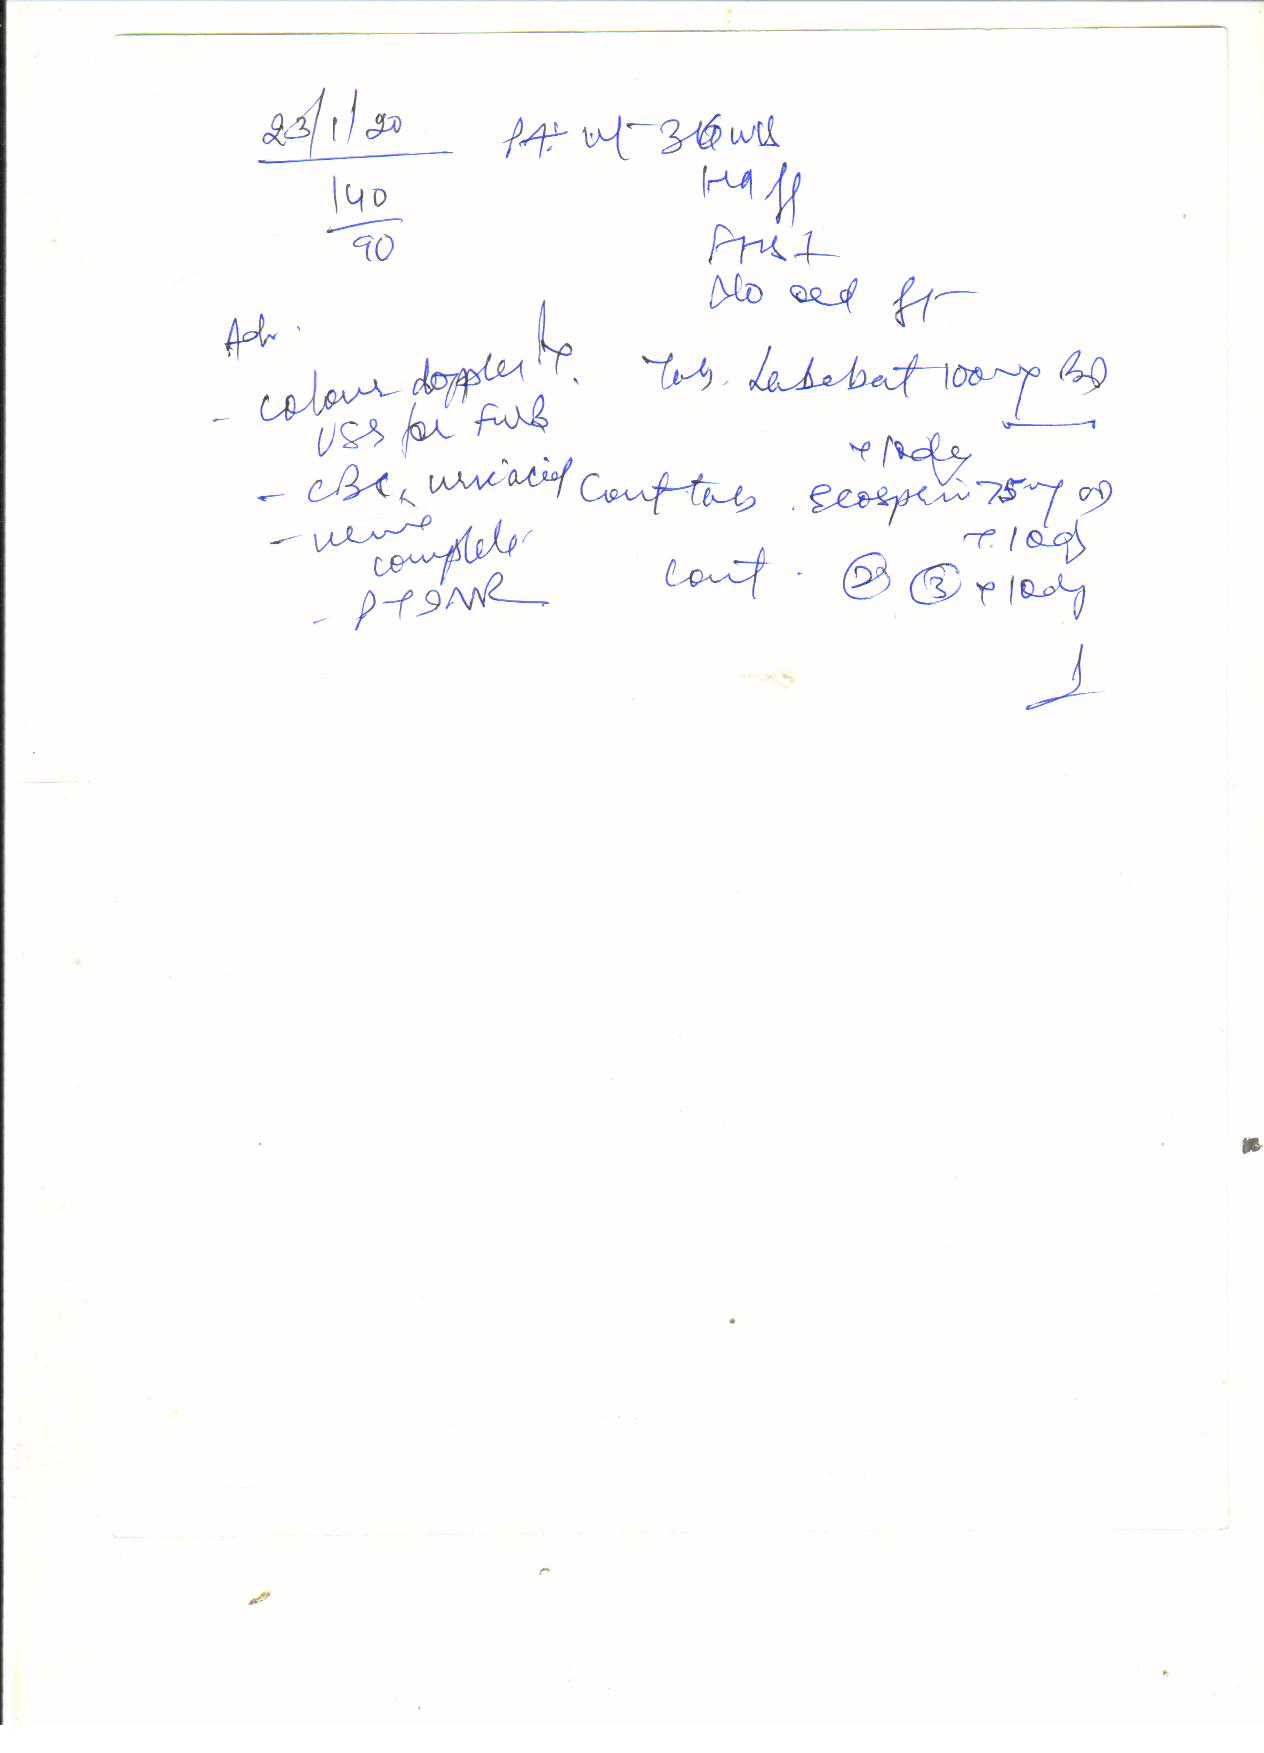 23/1/20
140
90
PA: ut - 36 wks
FHS +
Adv.
- colour doppler
USS for FWB
- CBC, uric acid
- urine
complete
- PT INR
Rx
Tab. Labebat 100mg BD
x 10dy
Cont tab. Ecosprin 75mg OD
x 10dy
Cont. ② ③ x 10dy